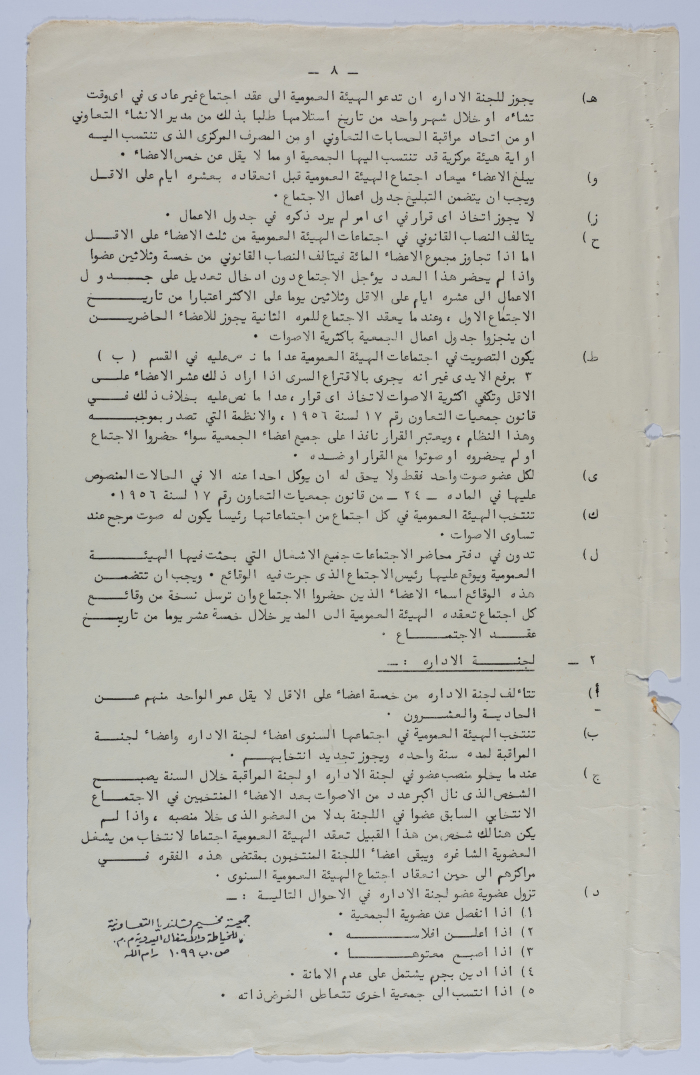 - ٨ -
هـ) يجوز للجنة الاداره ان تدعو الهيئة العمومية الى عقد اجتماع غير عادى في اى وقت
تشاءه او خلال شهر واحد من تاريخ استلامها طلبا بذلك من مدير الانشاء التعاوني
او من اتحاد مراقبة الحسابات التعاوني او من المصرف المركزى الذى تنتسب اليه
او اية هيئة مركزية قد تنتسب اليها الجمعية او مما لا يقل عن خمس الاعضاء ٠
و) يبلغ الاعضاء ميعاد اجتماع الهيئة العمومية قبل انعقاده بعشره ايام على الاقل
ويجب ان يتضمن التبليغ جدول اعمال الاجتماع ٠
ز) لا يجوز اتخاذ اى قرار في اى امر لم يرد ذكره في جدول الاعمال ٠
ح) يتالف النصاب القانوني في اجتماعات الهيئة العمومية من ثلث الاعضاء على الاقل
اما اذا تجاوز مجموع الاعضاء المائة فيتالف النصاب القانوني من خمسة وثلاثين عضوا
واذا لم يحضر هذا العدد يوجل الاجتماع دون ادخال تعديل على جدول
الاعمال الى عشره ايام على الاقل وثلاثين يوما على الاكثر اعتبارا من تاريخ
الاجتماع الاول ، وعندما يعقد الاجتماع للمره الثانية يجوز للاعضاء الحاضرين
ان ينجزوا جدول اعمال الجمعية باكثرية الاصوات ٠
ط) يكون التصويت في اجتماعات الهيئة العمومية عدا ما نص عليه في القسم ( ب )
٣ برفع الايدى غير انه يجرى بالاقتراع السرى اذا اراد ذلك عشر الاعضاء على
الاقل وتكفي اكثرية الاصوات لاتخاذ اى قرار ، عدا ما نص عليه بخلاف ذلك في
قانون جمعيات التعاون رقم ١٧ لسنة ١٩٥٦ ، والانظمة التي تصدر بموجبه
وهذا النظام ، ويعتبر القرار نافذا على جميع اعضاء الجمعية سواء حضروا الاجتماع
او لم يحضروه او صوتوا مع القرار او ضده ٠
ى) لكل عضو صوت واحد فقط ولا يحق له ان يوكل احدا عنه الا في الحالات المنصوص
عليها في الماده - ٢٤ - من قانون جمعيات التعاون رقم ١٧ لسنة ١٩٥٦ ٠
ك) تنتخب الهيئة العمومية في كل اجتماع من اجتماعاتها رئيسا يكون له صوت مرجح عند
تساوى الاصوات ٠
ل) تدون في دفتر محاضر الاجتماعات جميع الاشغال التي بحثت فيها الهيئة
العمومية ويوقع عليها رئيس الاجتماع الذى جرت فيه الوقائع ٠ ويجب ان تتضمن
هذه الوقائع اسماء الاعضاء الذين حضروا الاجتماع وان ترسل نسخة من وقائع
كل اجتماع تعقده الهيئة العمومية الى المدير خلال خمسة عشر يوما من تاريخ
عقد الاجتماع ٠
٢ - لجنة الاداره : -
أ) تتالف لجنة الاداره من خمسة اعضاء على الاقل لا يقل عمر الواحد منهم عن
الحادية والعشرون ٠
ب) تنتخب الهيئة العمومية في اجتماعها السنوى اعضاء لجنة الاداره واعضاء لجنة
المراقبة لمده سنة واحده ويجوز تجديد انتخابهم ٠
ج) عندما يخلو منصب عضو في لجنة الاداره او لجنة المراقبة خلال السنة يصبح
الشخص الذى نال اكبر عدد من الاصوات بعد الاعضاء المنتخبين في الاجتماع
الانتخابي السابق عضوا في اللجنة بدلا من العضو الذى خلا منصبه ، واذا لم
يكن هنالك شخص من هذا القبيل تعقد الهيئة العمومية اجتماعا لانتخاب من يشغل
العضوية الشاغره ويبقى اعضاء اللجنة المنتخبون بمقتضى هذه الفقره في
مراكزهم الى حين انعقاد اجتماع الهيئة العمومية السنوى ٠
د) تزول عضوية عضو لجنة الاداره في الاحوال التالية : -
١) اذا انفصل عن عضوية الجمعية ٠
٢) اذا اعلن افلاسه ٠
٣) اذا اصبح معتوها ٠
٤) اذا ادين بجرم يشتمل على عدم الامانة ٠
٥) اذا انتسب الى جمعية اخرى تتعاطى الغرض ذاته ٠
جمعية مخيم قلنديا التعاونية
للخياطة والاشغال اليدوية م.م.
ص.ب ١٠٩٩ رام الله